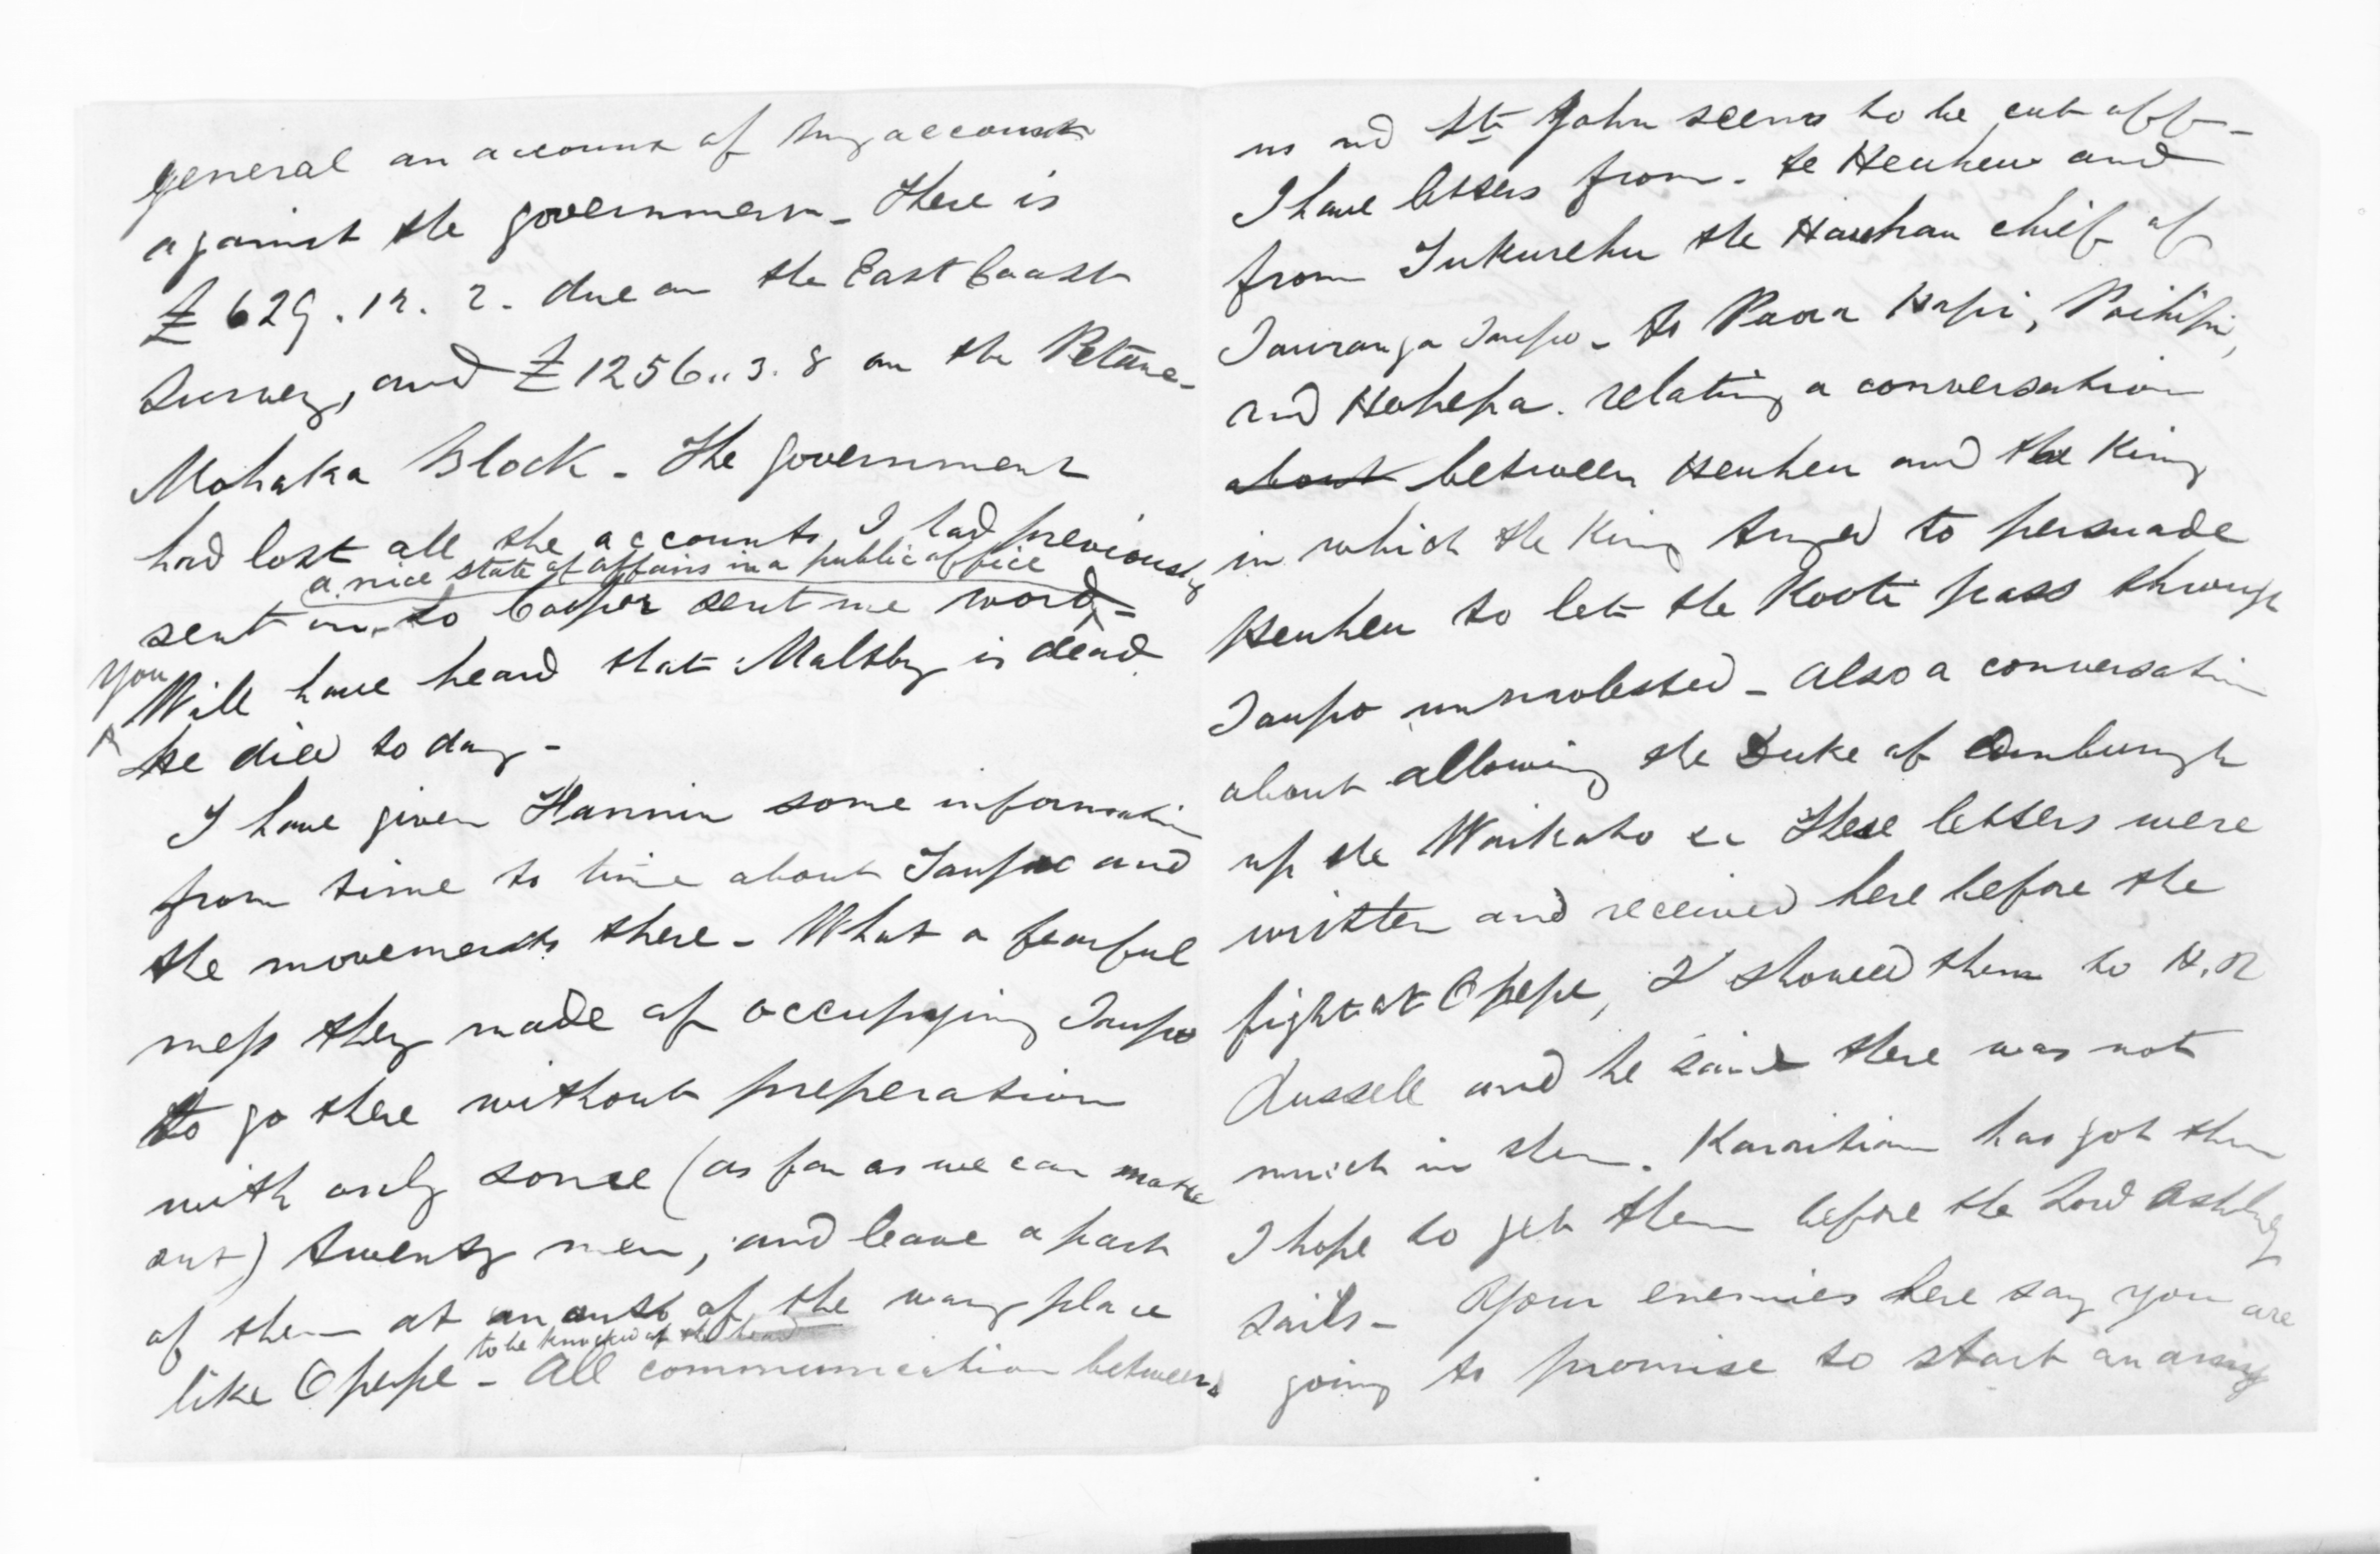 general an account of my accounts
against the government - There is
£629.12.2. due on the East Coast
Survey, and £1256..3.8 on the Petane-
Mohaka Block - The government
had lost all the accounts I had previously
a nice state of affairs in a public office
sent in, so Cooper sent me word -
You
Will have heard that Maltby is dead
he died to day -
I have given Hannin some information
from time to time about Taupo and
the movements there - What a fearful
mess they made of occupying Taupo
to go there without preperation
with only some (as far as we can make
out) twenty men, and leave a part
of them at an out of the way place
to be knocked on the head
like Opepe - All communication between
us and St John seems to be cut off -
I have letters from - te Heuheu and
from Tukurehu the Hauhau chief of
Tauranga Taupo - to Paora Hapi, Poihipi,
and Hohepa. relating a conversation
about between Heuheu and the King
in which the King tryed to persuade
Heuheu to let the Kooti pass through
Taupo unmolested - Also a conversation
about allowing the Duke of Edinburgh
up the Waikato &c These letters were
written and received here before the
fight at Opepe, I showed them to H. R
Russell and he said there was not
much in them. Karaitiana has got them
I hope to get them before the Lord Ashley
sails - Your enemies here say you are
going to promise to start an army